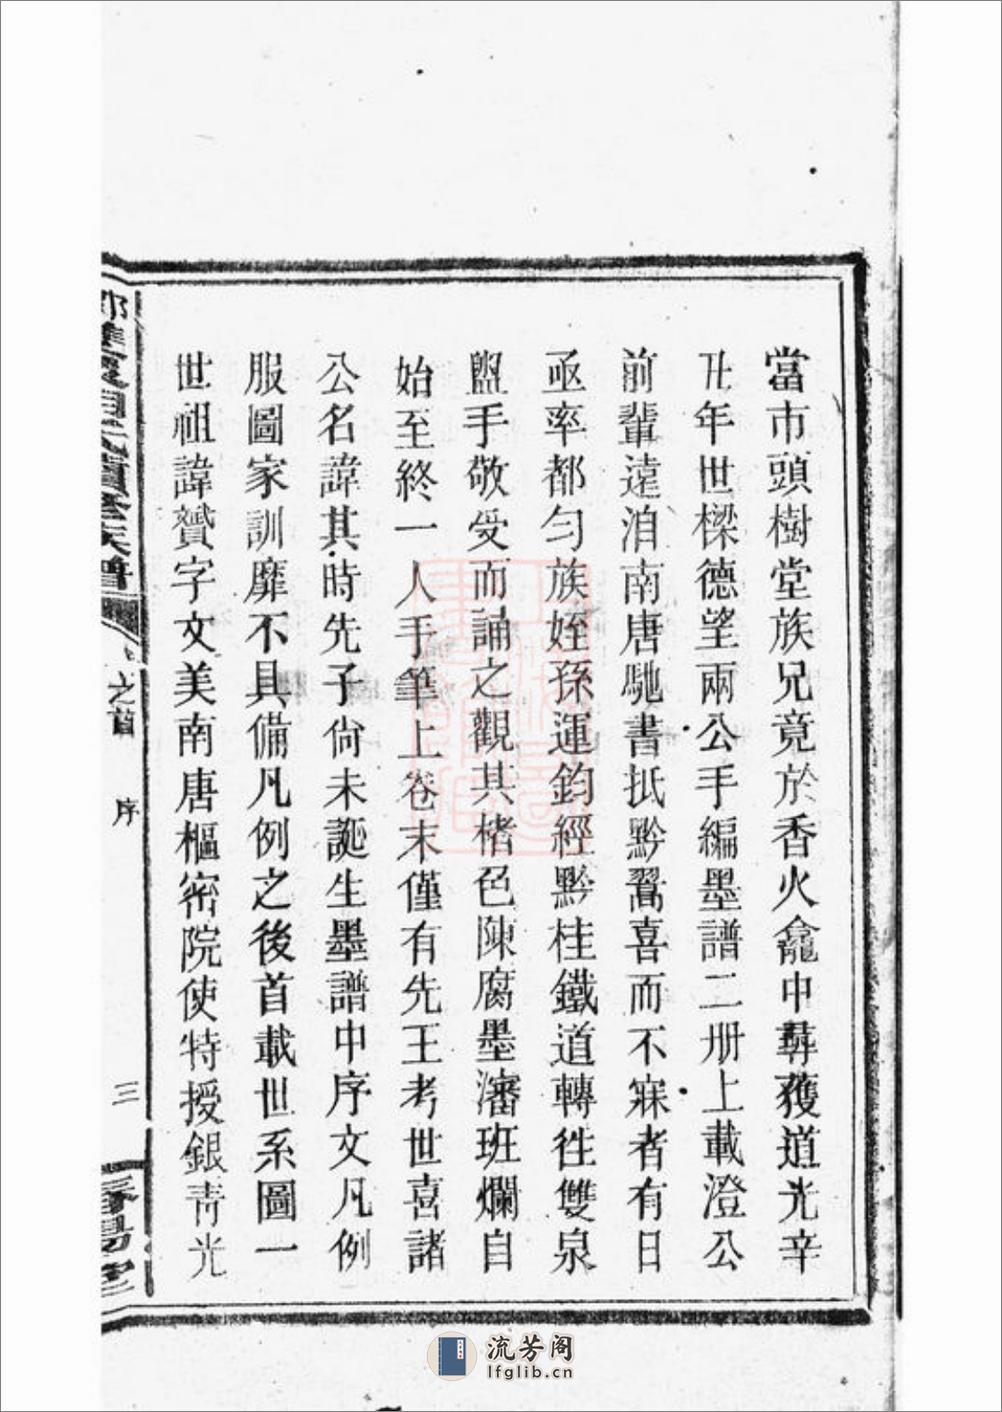 當市頭樹堂族兄竟於香火龕中尋獲道光辛
丑年世樑德望兩公手編墨譜二册上載澄公
前輩遠洎南唐馳書抵黔翯喜而不寐者有日
亟率都匀族姪孫運鈞經黔桂鐵道轉徃雙泉
盥手敬受而誦之觀其楮色陳腐墨瀋班爛自
始至終一人手筆上卷末僅有先王考世喜諸
公名諱其時先子尙未誕生墨譜中序文凡例
服圖家訓靡不具備凡例之後首載世系圖一
世祖諱贇字文美南唐樞密院使特授銀靑光
續修族譜
之首
序
三
流芳阁
lfglib.cn